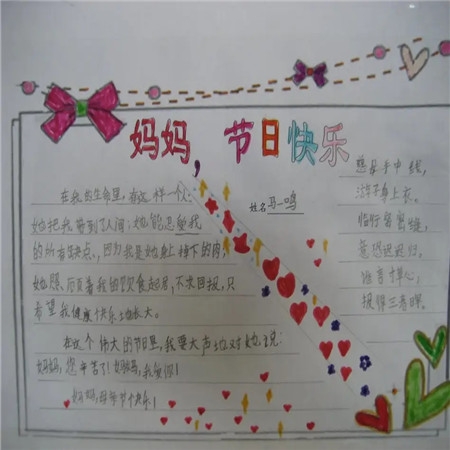 妈妈，节日快乐
姓名马一鸣
在我的生命里，有这样一个人：
她把我带到了人间；她能忍受我
的所有缺点，因为我是她身上掉下的肉；
她照顾着我的饮食起居，不求回报，只
希望我健康快乐地长大。
在这个伟大的节日里，我要大声地对她说：
妈妈，您辛苦了！妈妈，我爱你！
妈妈，母亲节快乐！
慈母手中线，
游子身上衣。
临行密密缝，
意恐迟迟归。
谁言寸草心，
报得三春晖。